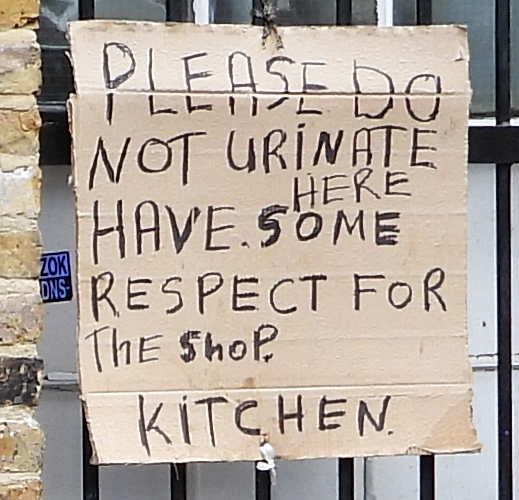 PLEASE DO
NOT URINATE
HERE
HAVE. SOME
RESPECT FOR
ThE ShoP.
KiTCHEN.
ZOK
DNS